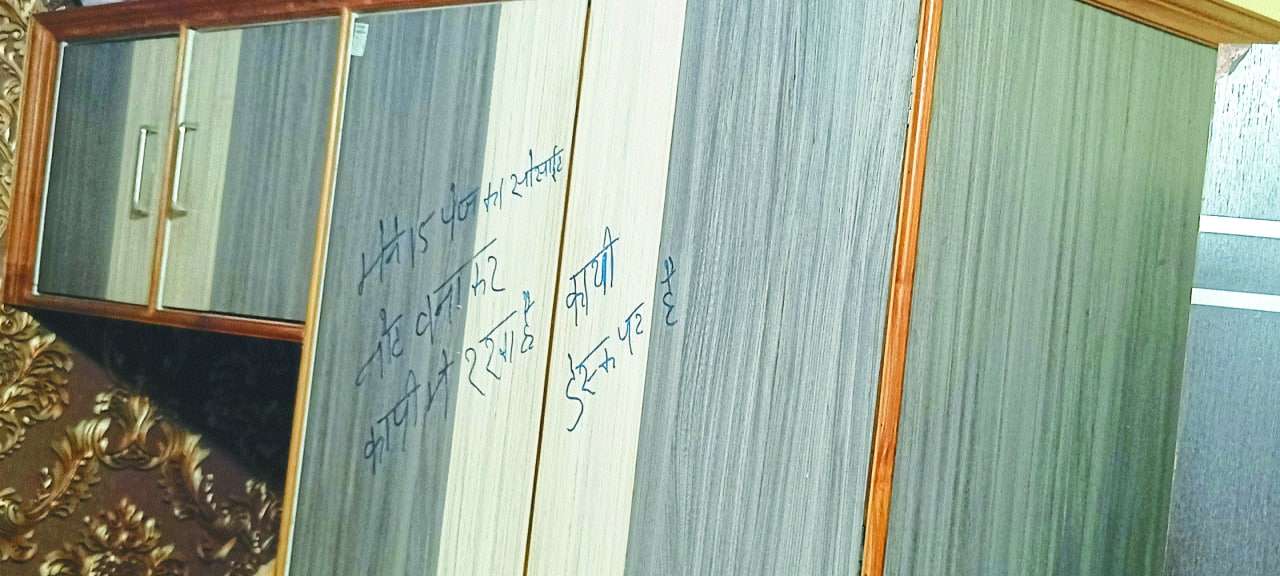 मैने 15 पेज का सोसाईट
नोट बना कर
कापी मे ररखा है
कापी
डेस्क पर है